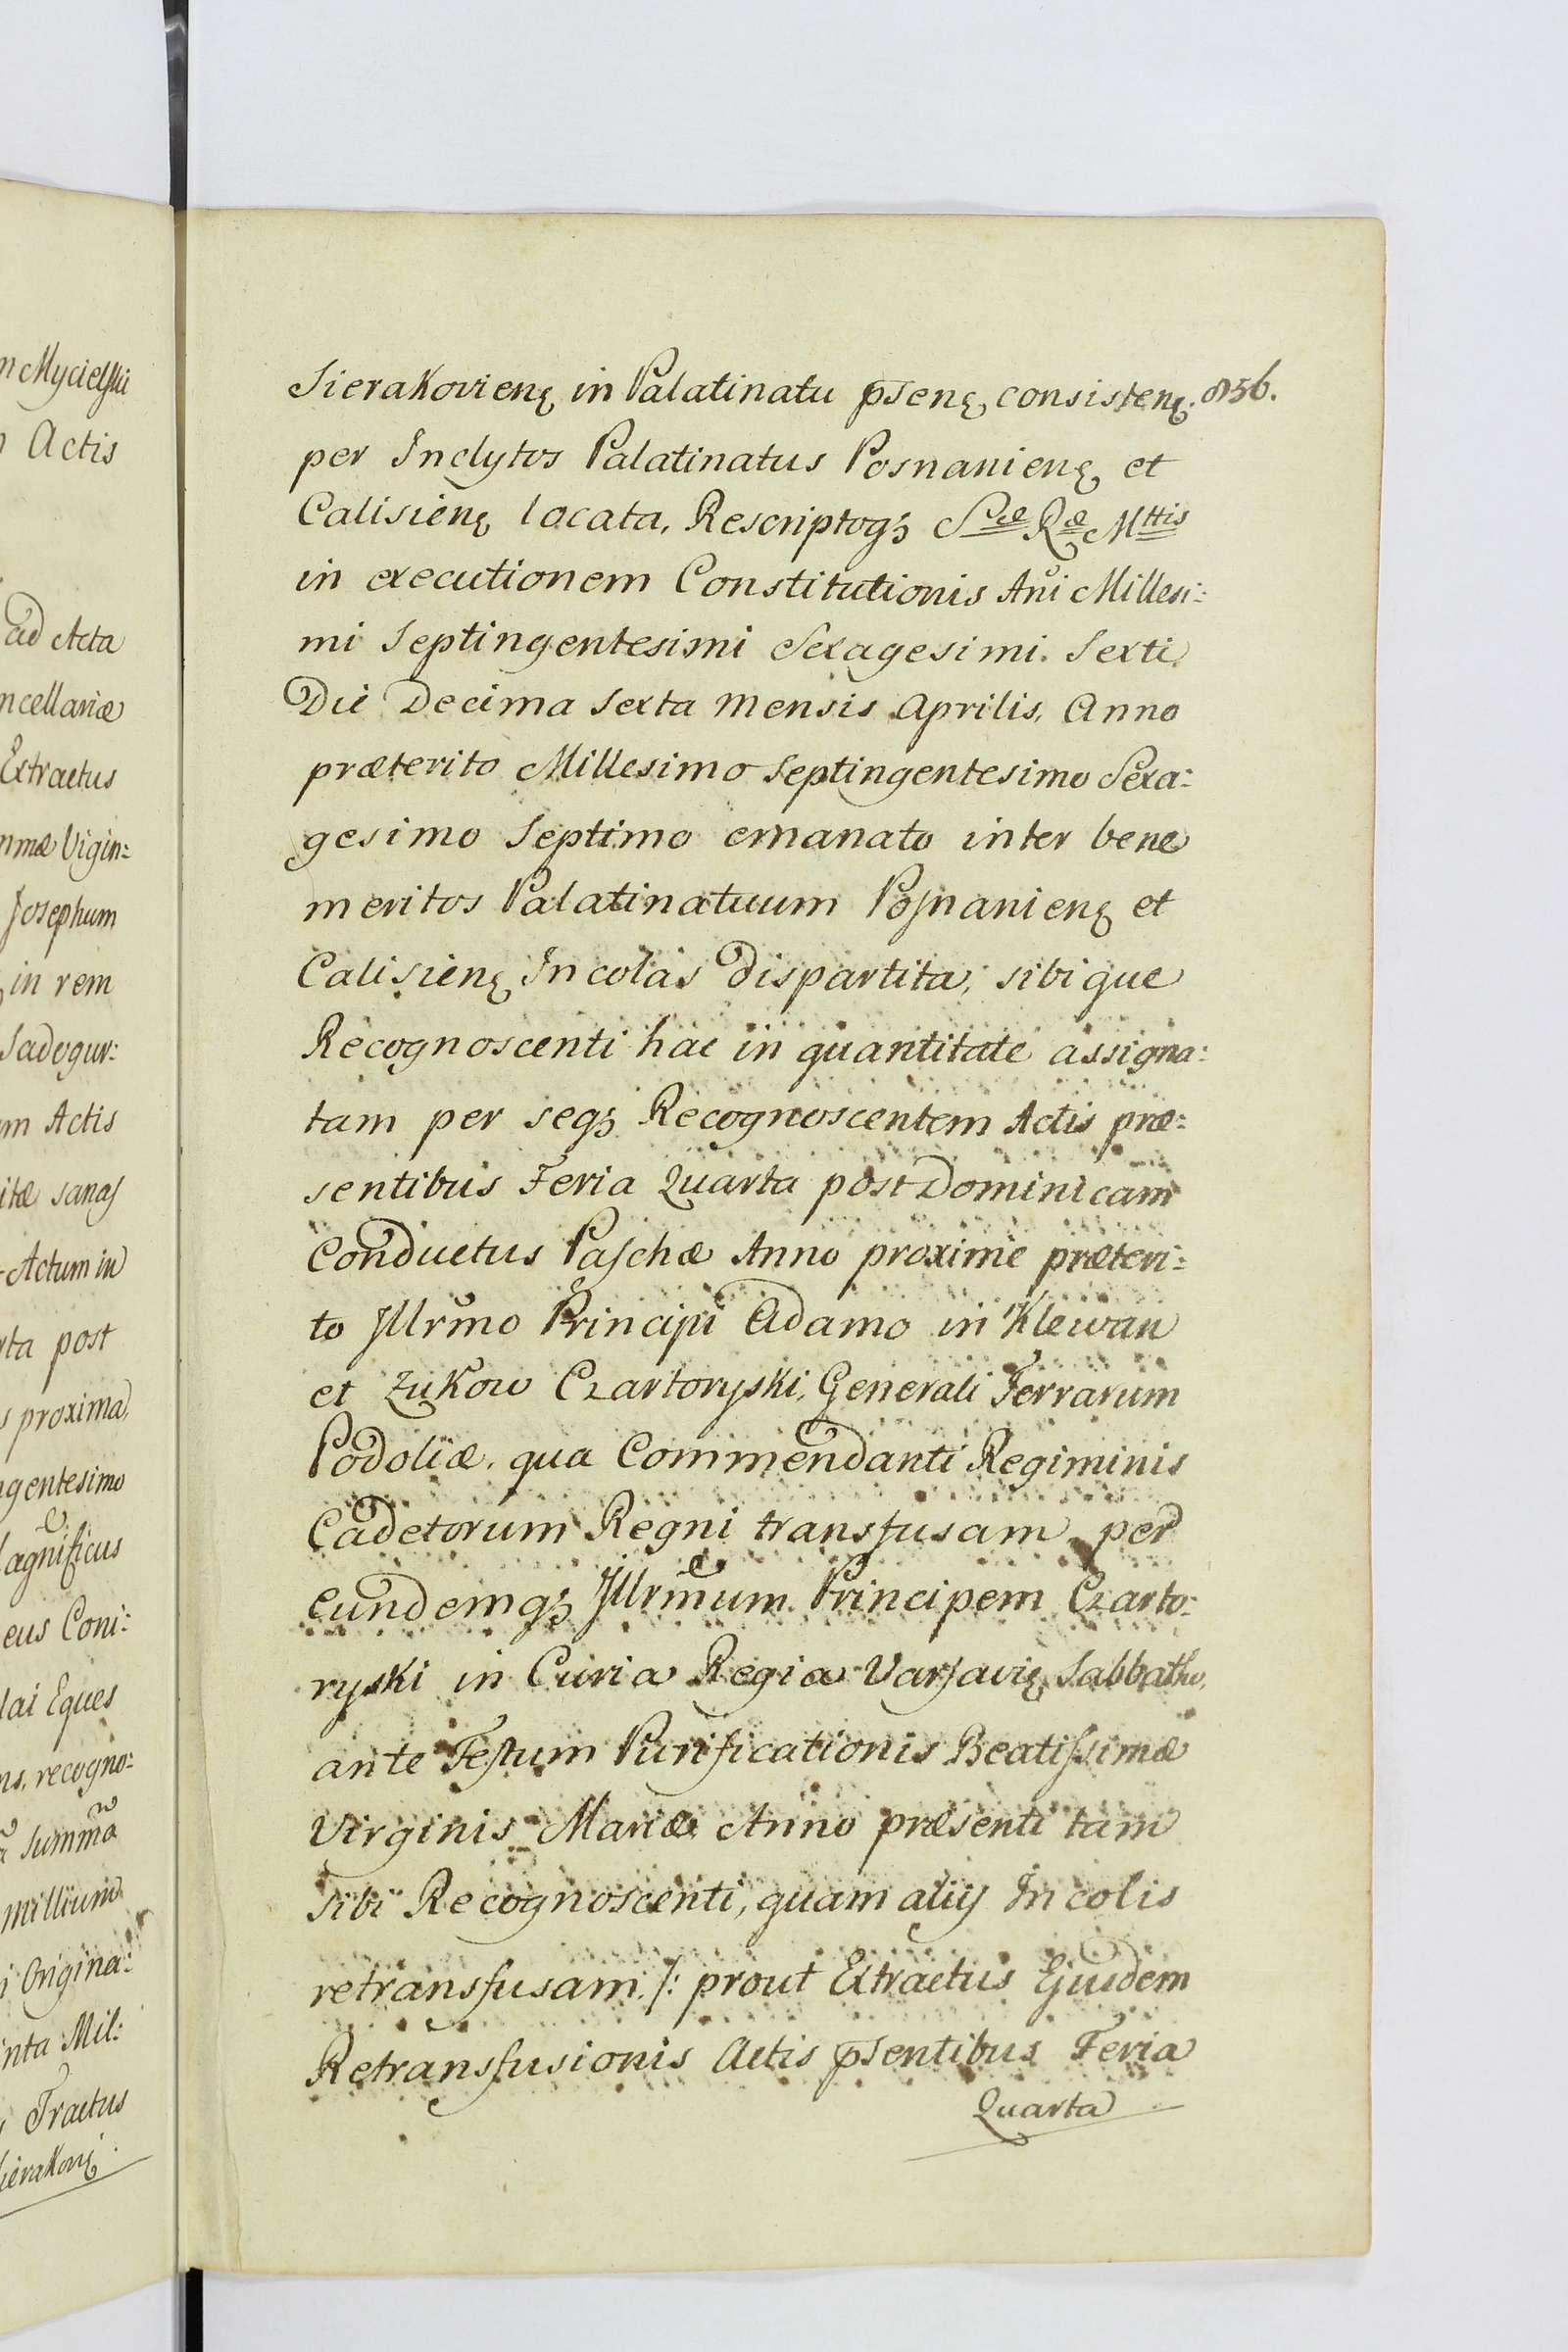 n Mycielski
Actis
ad Acta
ncellariæ
Extractus
mmæ Vigin:
Josephum
in rem
Sadogur:
m Actis
itæ sanaſ
Actum in
rta post
s proxima,
ngentesimo
agnificus
eus Coni:
lai Eques
ns, recogno:
Summa
millium
i Origina:
inta Mil:
Tractus
Sierakovię
Sierakovienę in Palatinatu p̄senę consistenę. 856.
per Inclytos Palatinatus Posnanienę et
Calisienę locata, Rescriptoqꝫ Sæ Ræ Mttis
in executionem Constitutionis Ani Millesi:
mi Septingentesimi Sexagesimi Sexti
Die Decima Sexta Mensis Aprilis, Anno
præterito Millesimo Septingentesimo Sexa:
gesimo Septimo emanato inter bene
meritos Palatinatuum Poſnanienę et
Calisienę Incolas dispartita, sibique
Recognoscenti hac in quantitate assigna:
tam per seqꝫ Recognoscentem Actis præ:
sentibus Feria Quarta post Dominicam
Conductus Paſchæ Anno proxime præteri:
to Jllrmo Principi Adamo in Klewan
et Zukow Czartoryski, Generali Terrarum
Podoliæ, qua Commendanti Regiminis
Cadetorum Regni transfusam, per
eundemqꝫ Jllrmum Principem Czarto:
ryski in Curia Regia Varſavię Sabbatho,
ante Feſtum Purificationis Beatiſsimæ
Virginis Mariæ Anno præsenti tam
sibi Recognoscenti, quam alijs Incolis
retransfusam /: prout Extractus Ejusdem
Retransfusionis Actis p̄sentibus Feria
Quarta